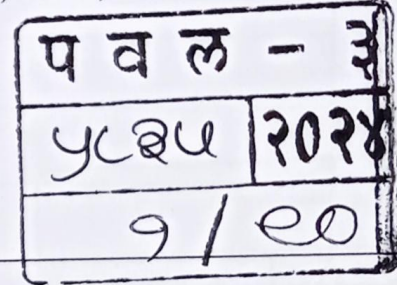 प व ल - ३
५८३५ २०२४
१ / ९०